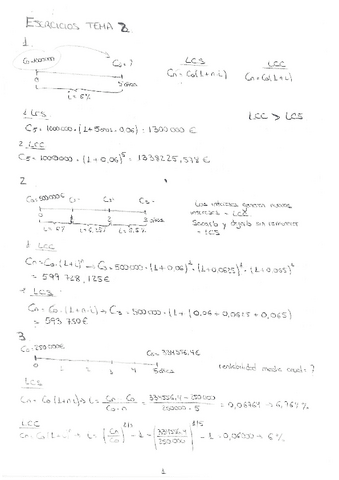 EJERCICIOS TEMA 2
1
C0=1000000 C5=? LCS LCC
Cn=C0(1+n·i) Cn=C0(1+i)
0 5 años
i=6%
1. LCS LCC > LCS
C5=1000000·(1+5·0.06)=1300000€
2. LCC
C5=1000000·(1+0,06)^5=1338225,578€
2
C0=500000€ C1- C2- C3-
0 1 2 3 años
Los intereses generan nuevos
intereses = LCC
i=6% i=6,25% i=6,5%
= LCS
1. LCC
Cn=C0·(1+i)^n → C3=500000·(1+0,06)·(1+0,0625)·(1+0,065)
= 599 718,125€
LCS
Cn=C0·(1+n·i) → C3=500000·(1+(0.06+0.0625+0,065)
= 593 750€
3
C0=250000€ C5=334556.4€
0 1 2 3 4 5 años rentabilidad media anual?
LCS
Cn=C0(1+n·i) → i=(Cn-C0)/(C0·n)=(334556.4-250000)/(250000·5)=0,06764 → 6,764%
LCC
Cn=C0(1+i)^n → i=(Cn/C0)^1/n - 1=(334556.4/250000)^1/5 - 1=0.06000 → 6%
1